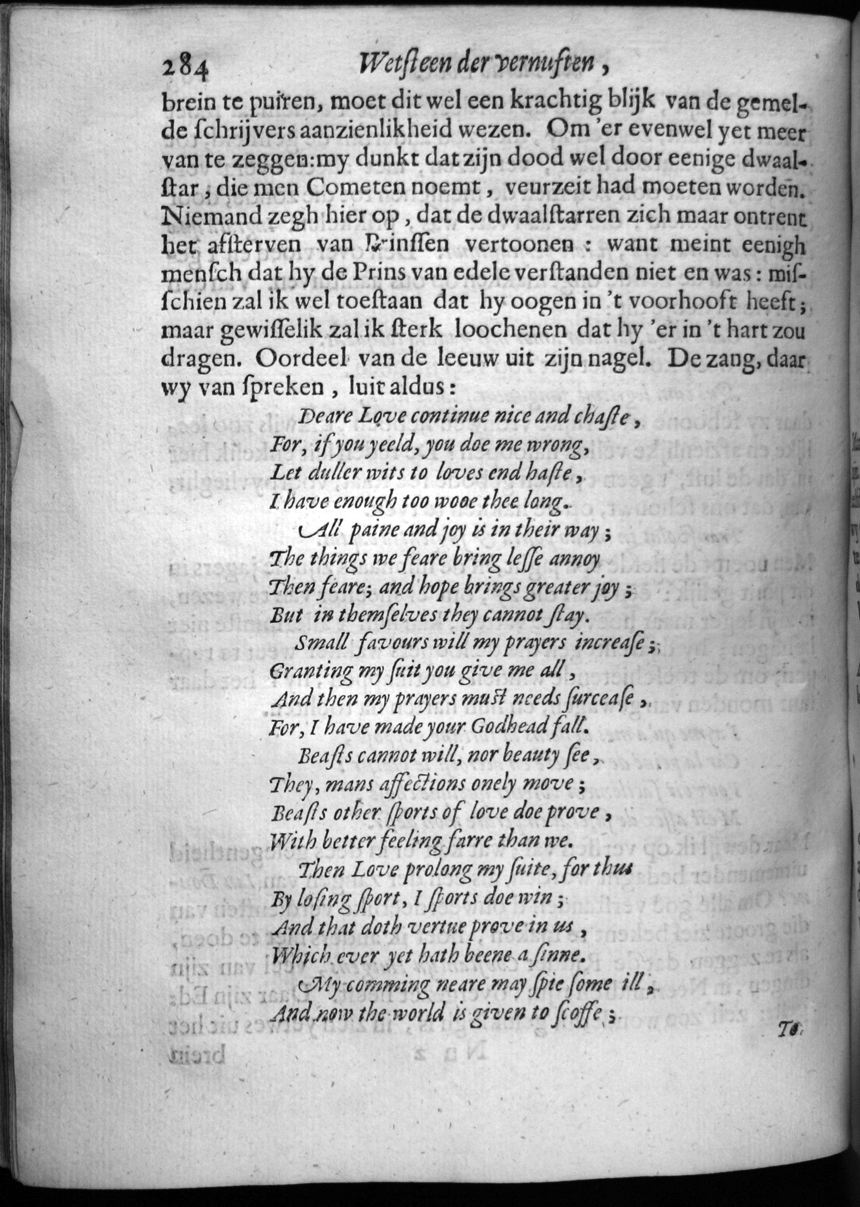 284 Wetſteen der vernuften,
brein te puiren, moet dit wel een krachtig blijk van de gemel-
de ſchrijvers aanzienlikheid wezen. Om 'er evenwel yet meer
van te zeggen: my dunkt dat zijn dood wel door eenige dwaal-
ſtar, die men Cometen noemt, veurzeit had moeten worden.
Niemand zegh hier op, dat de dwaalſtarren zich maar ontrent
het afſterven van Prinſſen vertoonen : want meint eenigh
menſch dat hy de Prins van edele verſtanden niet en was : miſ-
ſchien zal ik wel toeſtaan dat hy oogen in 't voorhooft heeft;
maar gewiſſelik zal ik ſterk loochenen dat hy 'er in 't hart zou
dragen. Oordeel van de leeuw uit zijn nagel. De zang, daar
wy van ſpreken, luit aldus :
Deare Love continue nice and chaſte,
For, if you yeeld, you doe me wrong,
Let duller wits to loves end haſte,
I have enough too wooe thee long.
All paine and joy is in their way ;
The things we feare bring leſſe annoy
Then feare; and hope brings greater joy ;
But in themſelves they cannot ſtay.
Small favours will my prayers increaſe ;
Granting my ſuit you give me all,
And then my prayers muſt needs ſurceaſe,
For, I have made your Godhead fall.
Beaſts cannot will, nor beauty ſee,
They, mans affections onely move ;
Beaſts other ſports of love doe prove,
With better feeling farre than we.
Then Love prolong my ſuite, for thus
By loſing ſport, I ſports doe win ;
And that doth vertue prove in us,
Which ever yet hath beene a ſinne.
My comming neare may ſpie ſome ill,
And now the world is given to ſcoffe ;
To